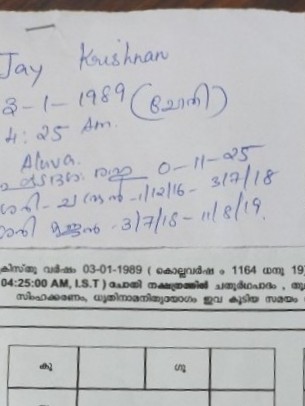 Jay Krishnan
3-1-1989 (ചോതി)
4:25 Am.
Aluva.
0-11-25
ശനി - ചന്ദ്രൻ - 1/12/16 - 3/7/18
ശനി കുജൻ - 3/7/18 - 11/8/19
ക്രിസ്തു വർഷം 03-01-1989 ( കൊല്ലവർഷം 1164 ധനു 19)
04:25:00 AM, I.S.T ) ചോതി നക്ഷത്രത്തിൽ ചതുർഥപാദം , തു
സിംഹക്കരണം, ധൃതിനാമനിത്യയോഗം ഇവ കൂടിയ സമയം
കു ഗു